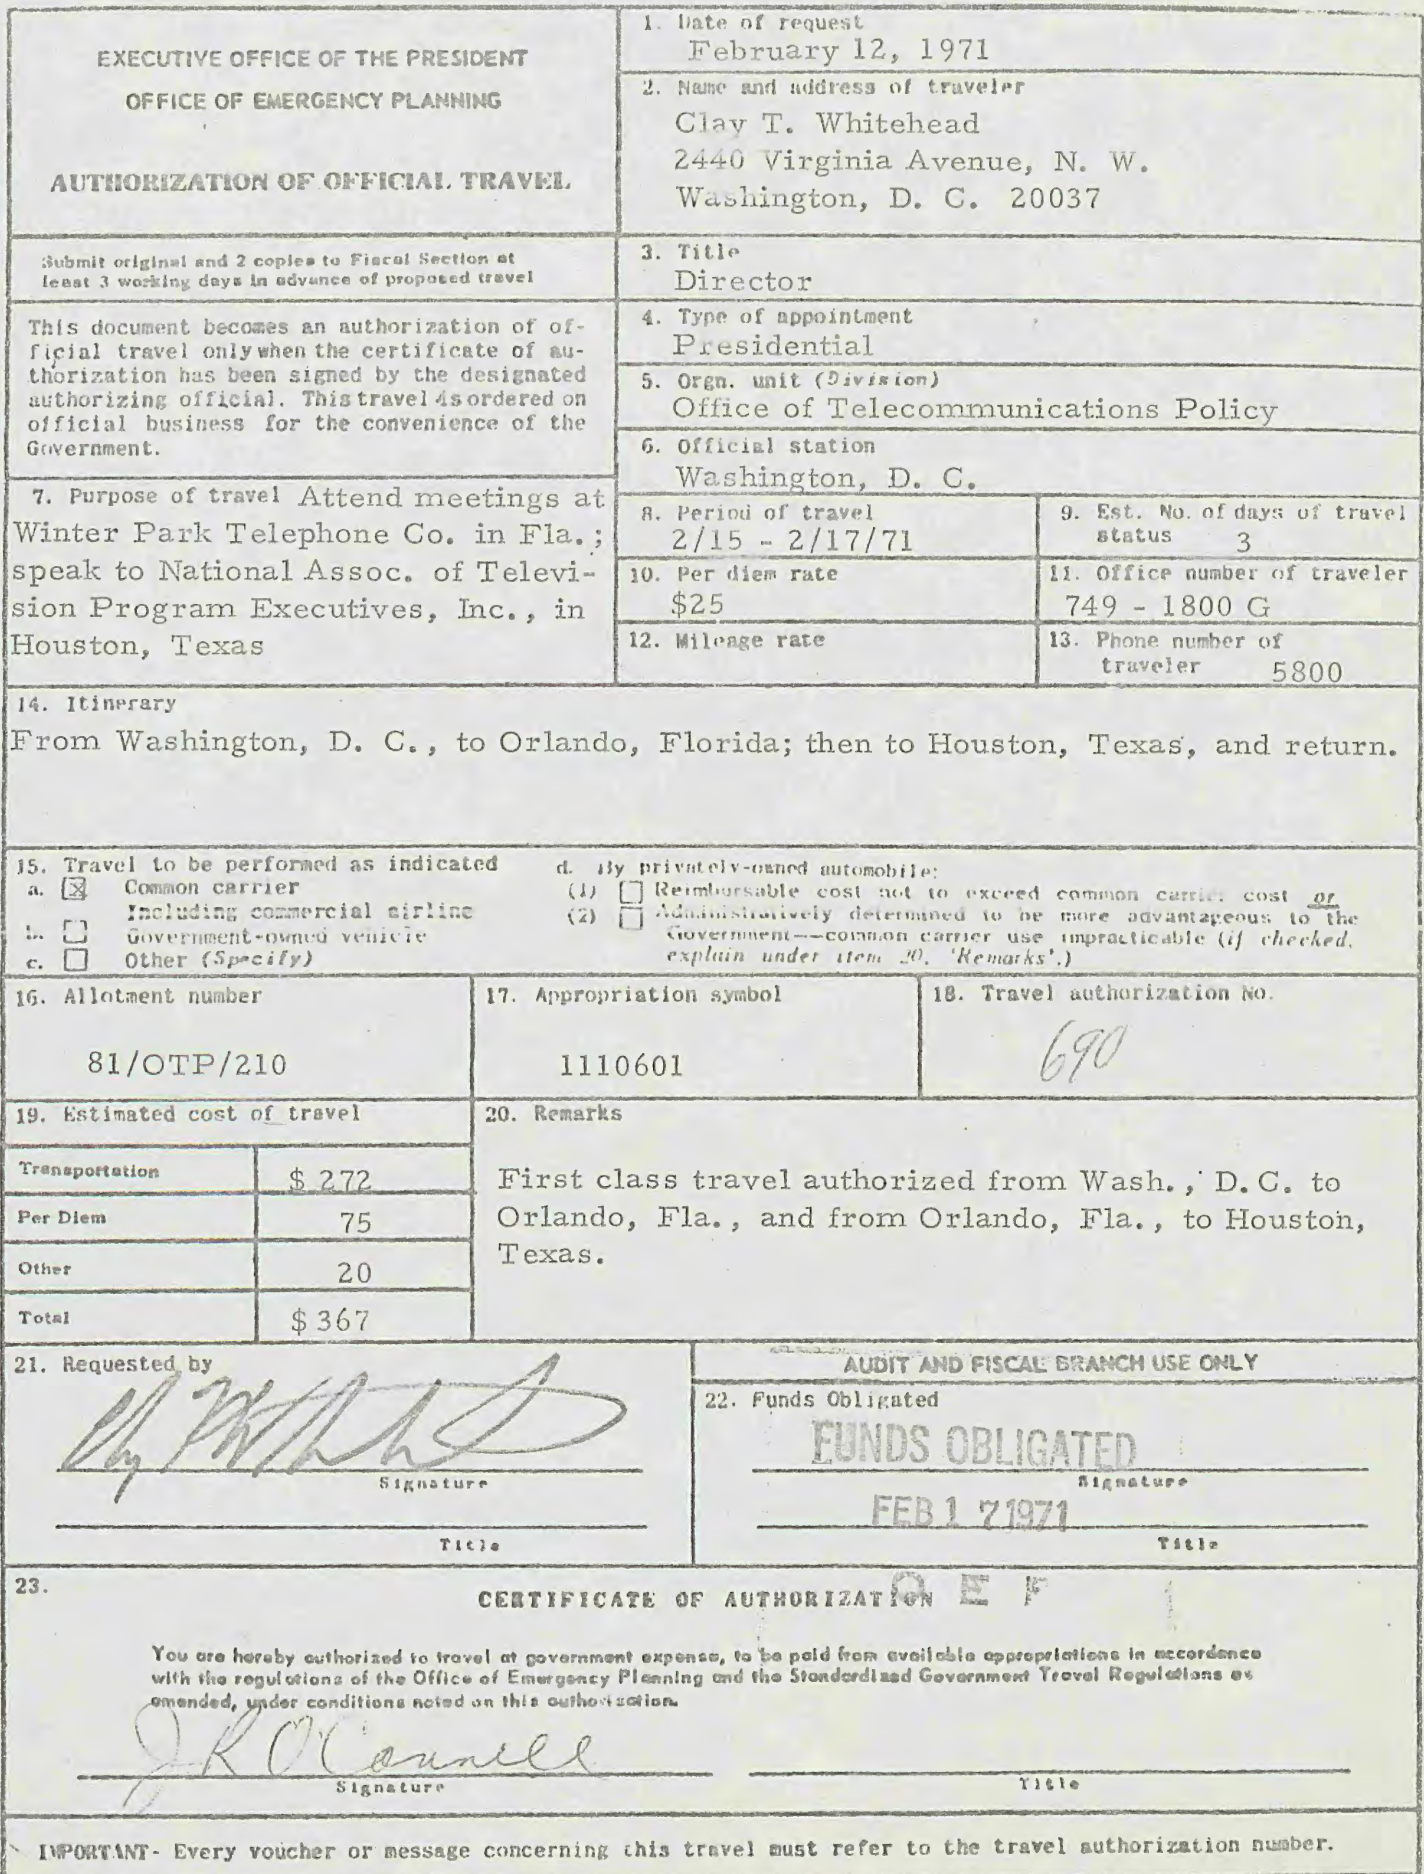 EXECUTIVE OFFICE OF THE PRESIDENT
OFFICE OF EMERGENCY PLANNING
AUTHORIZATION OF OFFICIAL TRAVEL
Submit original and 2 copies to Fiscal Section at
least 3 working days in advance of proposed travel
This document becomes an authorization of of-
ficial travel only when the certificate of au-
thorization has been signed by the designated
authorizing official. This travel is ordered on
official business for the convenience of the
Government.
1. Date of request
February 12, 1971
2. Name and address of traveler
Clay T. Whitehead
2440 Virginia Avenue, N. W.
Washington, D. C. 20037
3. Title
Director
4. Type of appointment
Presidential
5. Orgn. unit (Division)
Office of Telecommunications Policy
6. Official station
Washington, D. C.
7. Purpose of travel Attend meetings at
Winter Park Telephone Co. in Fla.;
speak to National Assoc. of Televi-
sion Program Executives, Inc., in
Houston, Texas
8. Period of travel
2/15 - 2/17/71
9. Est. No. of days of travel
status 3
10. Per diem rate
$25
11. Office number of traveler
749 - 1800 G
12. Mileage rate
13. Phone number of
traveler 5800
14. Itinerary
From Washington, D. C., to Orlando, Florida; then to Houston, Texas, and return.
15. Travel to be performed as indicated
a. [x] Common carrier
Including commercial airline
b. Government-owned vehicle
c. Other (Specify)
d. By privately-owned automobile:
(1) Reimbursable cost not to exceed common carrier cost or
(2) Administratively determined to be more advantageous to the
Government--common carrier use impracticable (if checked,
explain under item 20, 'Remarks'.)
16. Allotment number
81/OTP/210
17. Appropriation symbol
1110601
18. Travel authorization No.
690
19. Estimated cost of travel
Transportation $ 272
Per Diem 75
Other 20
Total $ 367
20. Remarks
First class travel authorized from Wash., D. C. to
Orlando, Fla., and from Orlando, Fla., to Houston,
Texas.
21. Requested by
Signature
Title
AUDIT AND FISCAL BRANCH USE ONLY
22. Funds Obligated
FUNDS OBLIGATED
Signature
FEB 17 1971
Title
23.
CERTIFICATE OF AUTHORIZATION
O E P
You are hereby authorized to travel at government expense, to be paid from available appropriations in accordance
with the regulations of the Office of Emergency Planning and the Standardized Government Travel Regulations as
amended, under conditions noted on this authorization.
J R O'Connell
Signature
Title
IMPORTANT- Every voucher or message concerning this travel must refer to the travel authorization number.